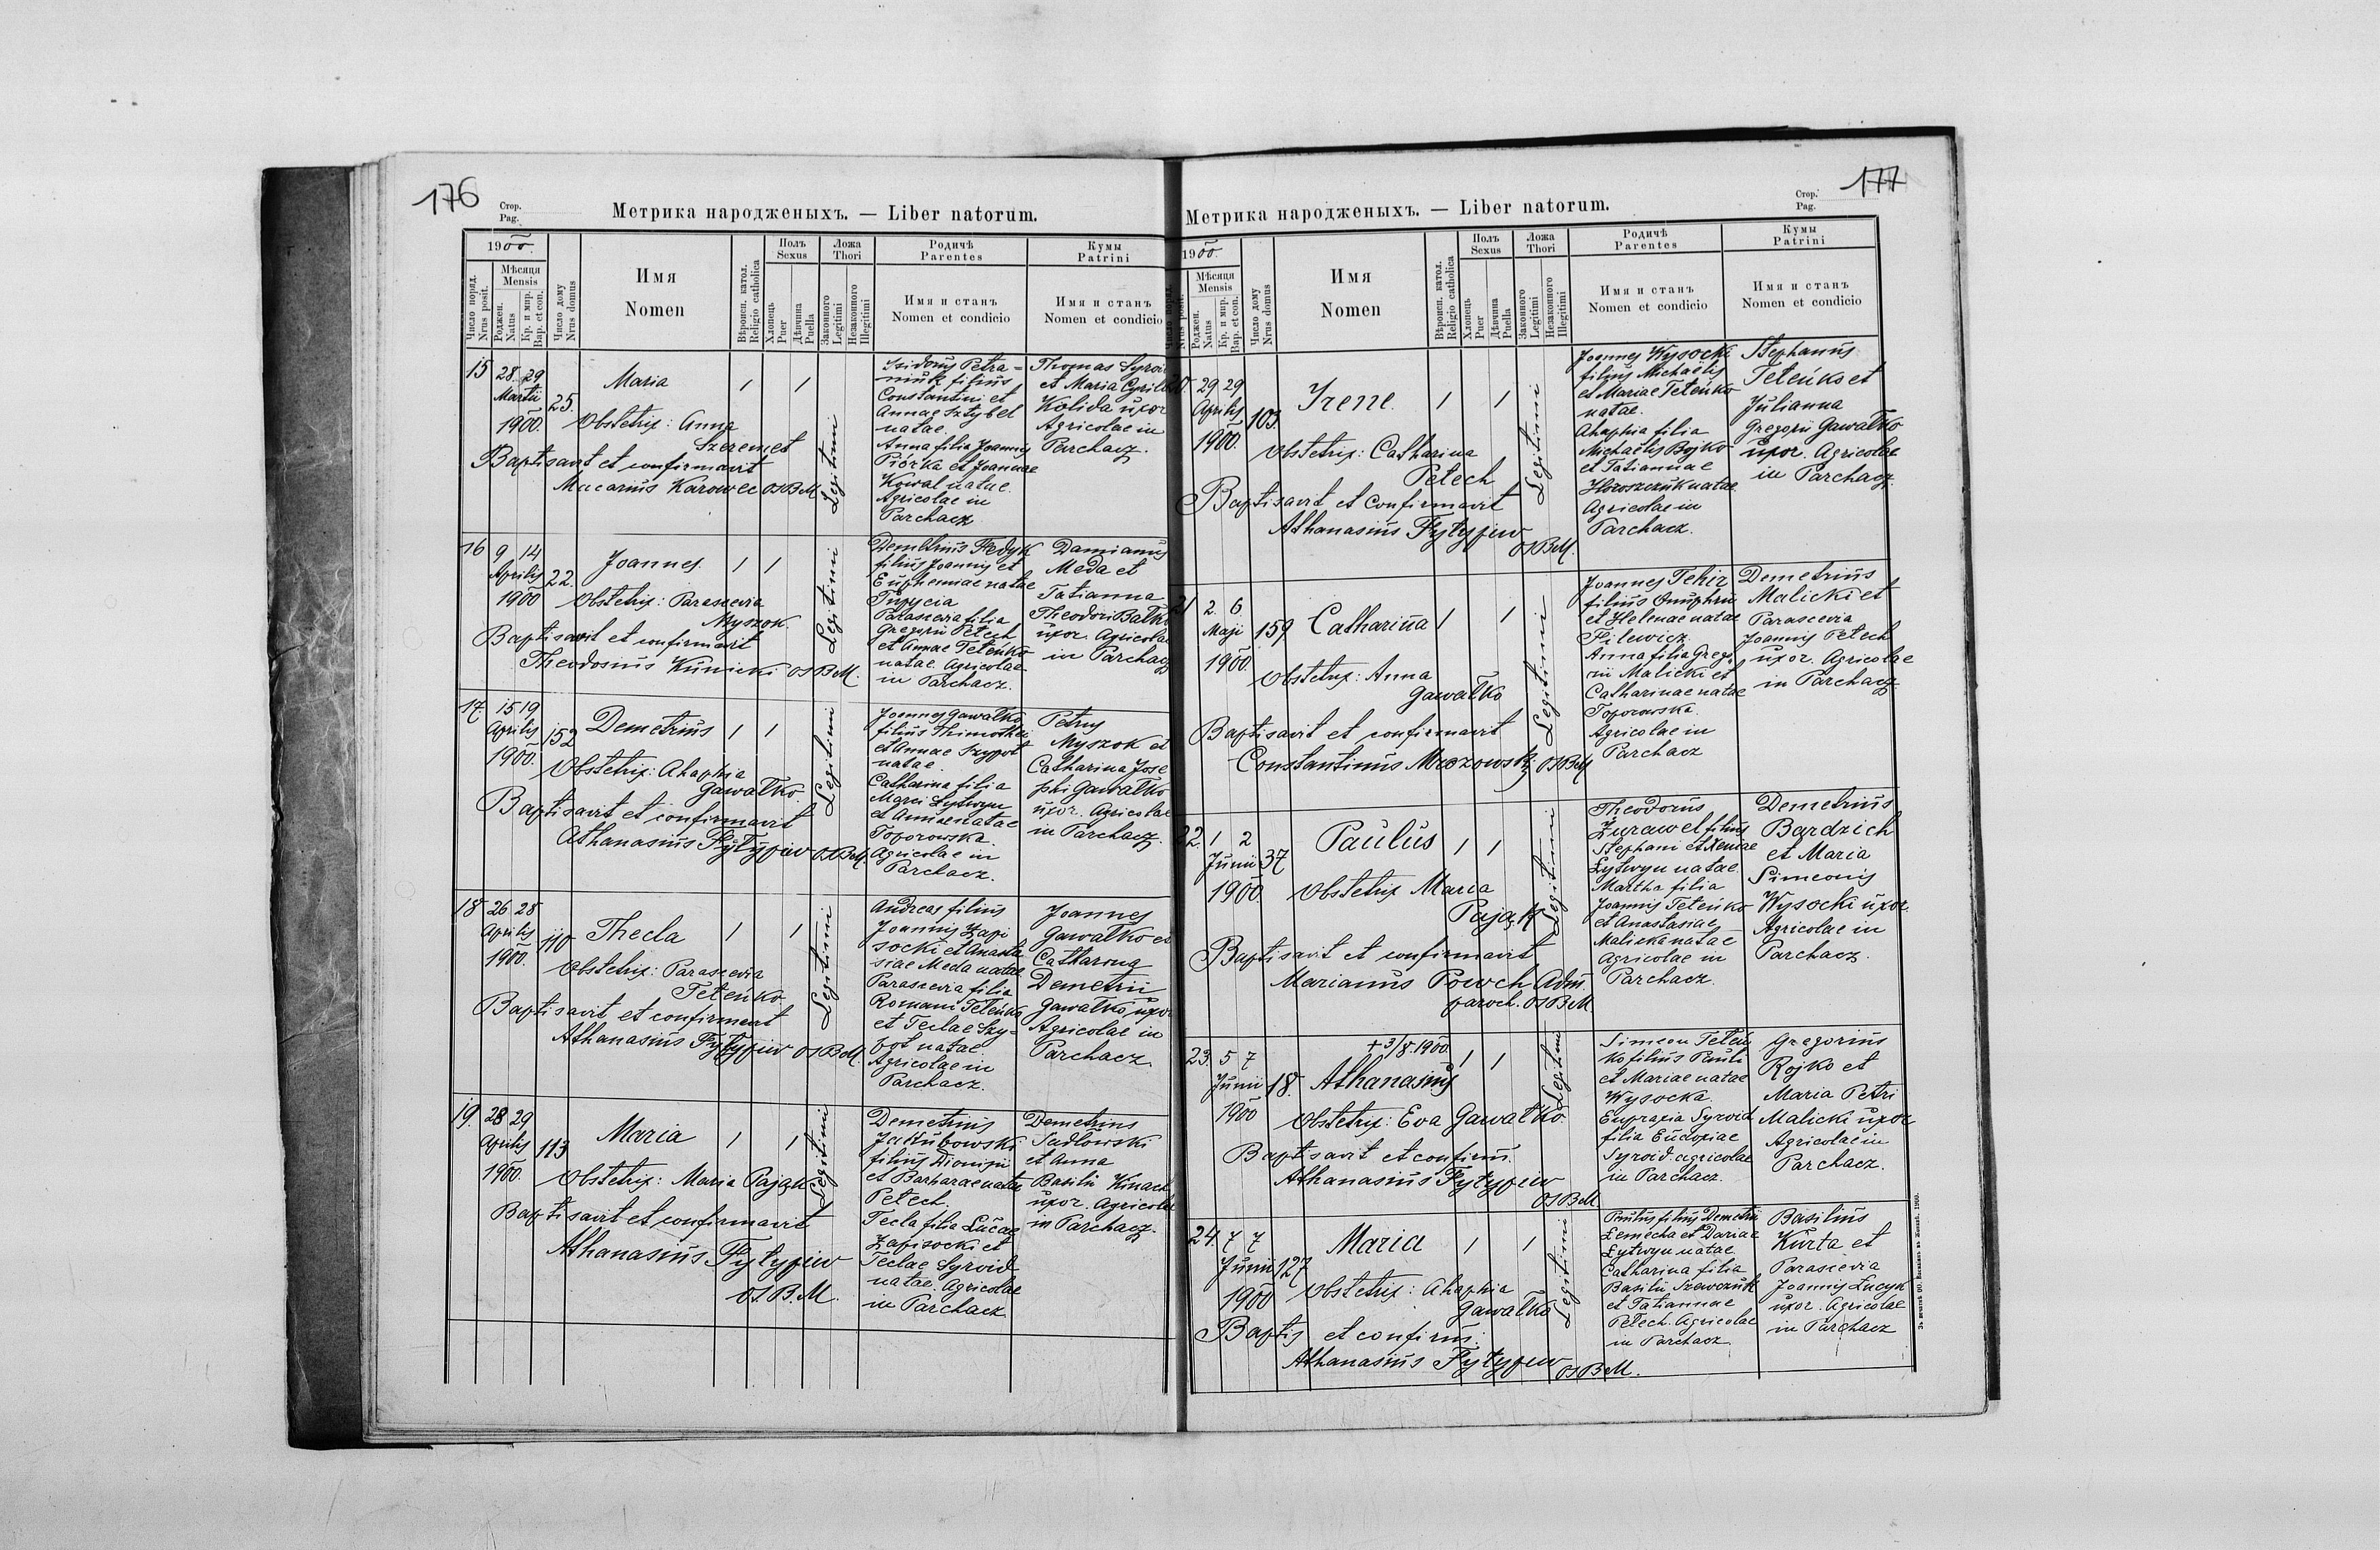 176
Стор.
Pag.
Метрика народженыхъ. — Liber natorum.
1900.
Число поряд.
Nrus posit.
Мѣсяця
Mensis
Роджен.
Natus
Кр. и мир.
Bap. et con.
Число дому
Nrus domus
Имя
Nomen
Вѣроисп. катол.
Religio catholica
Полъ
Sexus
Хлопець
Puer
Дѣвчина
Puella
Ложа
Thori
Законного
Legitimi
Незаконного
Illegitimi
Родичѣ
Parentes
Имя и станъ
Nomen et condicio
Кумы
Patrini
Имя и станъ
Nomen et condicio
15
28 29
Martii
1900.
25.
Maria
/ /
Obstetrix: Anna
Szeremet
Baptisavit et confirmavit
Macarius Karowec OSBM
Legitimi
Isidorus Petra-
niuk filius
Constantini et
Annae Sztybel
natae.
Anna filia Joannis
Piórka et Joannae
Kowal natae.
Agricolae in
Parchacz
Thomas Syroid
et Maria Cyrilli
Kolida uxor
Agricolae in
Parchacz.
16
9 14
Aprilis
1900
22.
Joannes.
/ /
Obstetrix: Parascevia
Myszok.
Baptisavit et confirmavit
Theodosius Kunicki OSBM.
Legitimi
Demetrius Fedyk
filius Joannis et
Euphemiae natae
Tupycia
Parascevia filia
Gregorii Petech
et Annae Teteńko
natae. Agricolae
in Parchacz.
Damianus
Meda et
Tatianna
Theodori Batko
uxor. Agricolae
in Parchacz
17.
15 19
Aprilis
1900.
152
Demetrius
/ /
Obstetrix: Ahaphia
Gawałko.
Baptisavit et confirmavit
Athanasius Fytypiw OSBM.
Legitimi
Joannes Gawałko
filius Thimothei
et Annae Szypot
natae.
Catharina filia
Marci Łytwyn
et Annae natae
Toporowska.
Agricolae in
Parchacz.
Petrus
Myszok et
Catharina Jose
phi Gawałko
uxor. Agricolae
in Parchacz.
18
26 28
Aprilis
1900.
110
Thecla
/ /
Obstetrix: Parascevia
Teteńko
Baptisavit et confirmavit
Athanasius Fytypiw OSBM.
Legitimi
Andreas filius
Joannis Zapi
socki et Anasta
siae Meda natae
Parascevia filia
Romani Teteńko
et Teclae Szy-
pot natae.
Agricolae in
Parchacz.
Joannes
Gawałko et
Catharina
Demetrii
Gawałko uxor
Agricolae in
Parchacz
19.
28 29
Aprilis
1900.
113
Maria
/ /
Obstetrix: Maria Pająk
Baptisavit et confirmavit
Athanasius Fytypiw
OS.B.M.
Legitimi
Demetrius
Jakubowski
filius Dionisii
et Barbarae natae
Petech
Tecla filia Lucae
Zapisocki et
Teclae Syroid
natae. Agricolae
in Parchacz
Demetrius
Sadłowski
et Anna
Basilii Kinach
uxor. Agricolae
in Parchacz.
177
Стор.
Pag.
Метрика народженыхъ. — Liber natorum.
1900.
Число поряд.
Nrus posit.
Мѣсяця
Mensis
Роджен.
Natus
Кр. и мир.
Bap. et con.
Число дому
Nrus domus
Имя
Nomen
Вѣроисп. катол.
Religio catholica
Полъ
Sexus
Хлопець
Puer
Дѣвчина
Puella
Ложа
Thori
Законного
Legitimi
Незаконного
Illegitimi
Родичѣ
Parentes
Имя и станъ
Nomen et condicio
Кумы
Patrini
Имя и станъ
Nomen et condicio
20.
29 29
Aprilis
1900.
103.
Irene.
/ /
Obstetrix: Catharina
Petech
Baptisavit et confirmavit
Athanasius Fytypiw
OSBM.
Legitimi
Joannes Wysocki
filius Michaëlis
et Mariae Teteńko
natae.
Ahaphia filia
Michaëlis Bojko
et Tatiannae
Horoszczuk natae
Agricolae in
Parchacz.
Stephanus
Teteńko et
Julianna
Gregorii Gawałko
uxor. Agricolae
in Parchacz.
21
2. 6
Maji
1900.
159
Catharina
/ /
Obstetrix: Anna
Gawałko
Baptisavit et confirmavit
Constantinus Mrozowskij OSBM
Legitimi
Joannes Tehir
filius Onuphrii
et Helenae natae
Hilewicz.
Anna filia Grego
rii Malicki et
Catharinae natae
Toporowska.
Agricolae in
Parchacz
Demetrius
Malicki et
Parascevia
Joannis Petech
uxor. Agricolae
in Parchacz
22.
1 2
Junii
1900.
37
Paulus
/ /
Obstetrix Maria
Pająk
Baptisavit et confirmavit
Marianus Powch Adm.
paroch. OSBM
Legitimi
Theodorus
Żurawel filius
Stephani et Xeniae
Łytwyn natae.
Martha filia
Joannis Teteńko
et Anastasiae
Malicka natae
Agricolae in
Parchacz.
Demetrius
Bardzich
et Maria
Simeonis
Wysocki uxor.
Agricolae in
Parchacz.
23.
5 7
Junii
1900
18.
+3/8.1900.
Athanasius
/ /
Obstetrix: Eva Gawałko.
Baptisavit et confirm.
Athanasius Fytypiw
OSBM
Legitimi
Simeon Teteń
ko filius Pauli
et Mariae natae
Wysocka.
Eupraxia Syroid
filia Eudoxiae
Syroid. agricolae
in Parchacz.
Gregorius
Rojko et
Maria Petri
Malicki uxor
Agricolae in
Parchacz.
24.
7 7
Junii
1900
127
Maria
/ /
Obstetrix: Ahaphia
Gawałko
Baptis et confirm.
Athanasius Fytypiw OSBM.
Legitimi
Paulus filius Demetrii
Łemecha et Dariae
Łytwyn natae.
Catharina filia
Basilii Szewczuk
et Tatiannae
Petech. Agricolae
in Parchacz
Basilius
Kurta et
Parascevia
Joannis Łucyk
uxor. Agricolae
in Parchacz